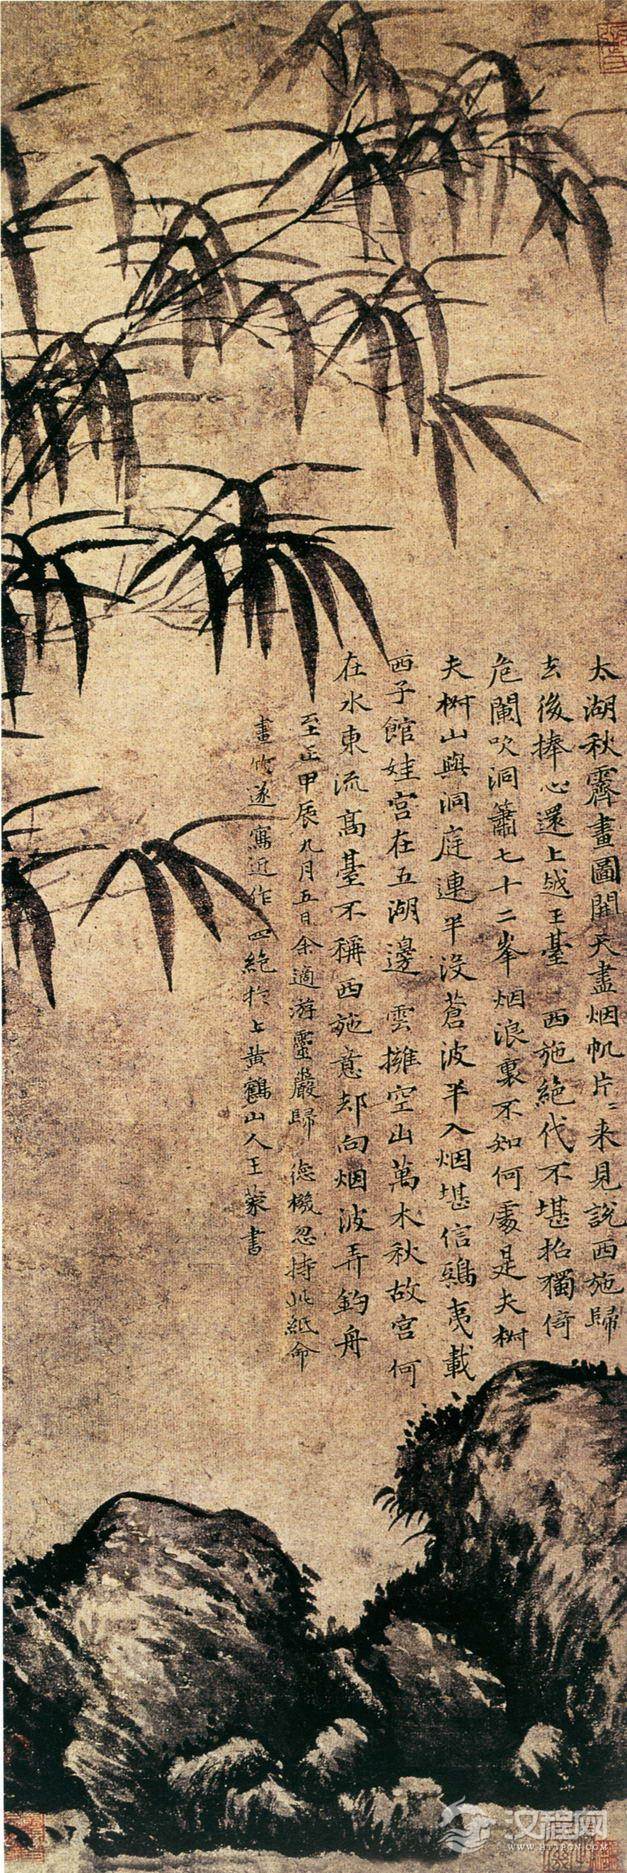 太湖秋霽畫圖開天盡烟帆片〻来見說西施歸
去後捧心還上越王臺 西施絶代不堪招獨倚
危闌吹洞簫七十二峯烟浪裏不知何處是夫椒
夫椒山與洞庭連半没蒼波半入烟堪信鴟夷載
西子館娃宫在五湖邊 雲擁空山萬木秋故宫何
在水東流髙臺不稱西施意却向烟波弄釣舟
至正甲辰九月五日余適游靈巖歸 德機忽持此紙命
畫竹遂寫近作四絶於上黄鶴山人王蒙書
汉程网
WWW.HTTPCN.COM